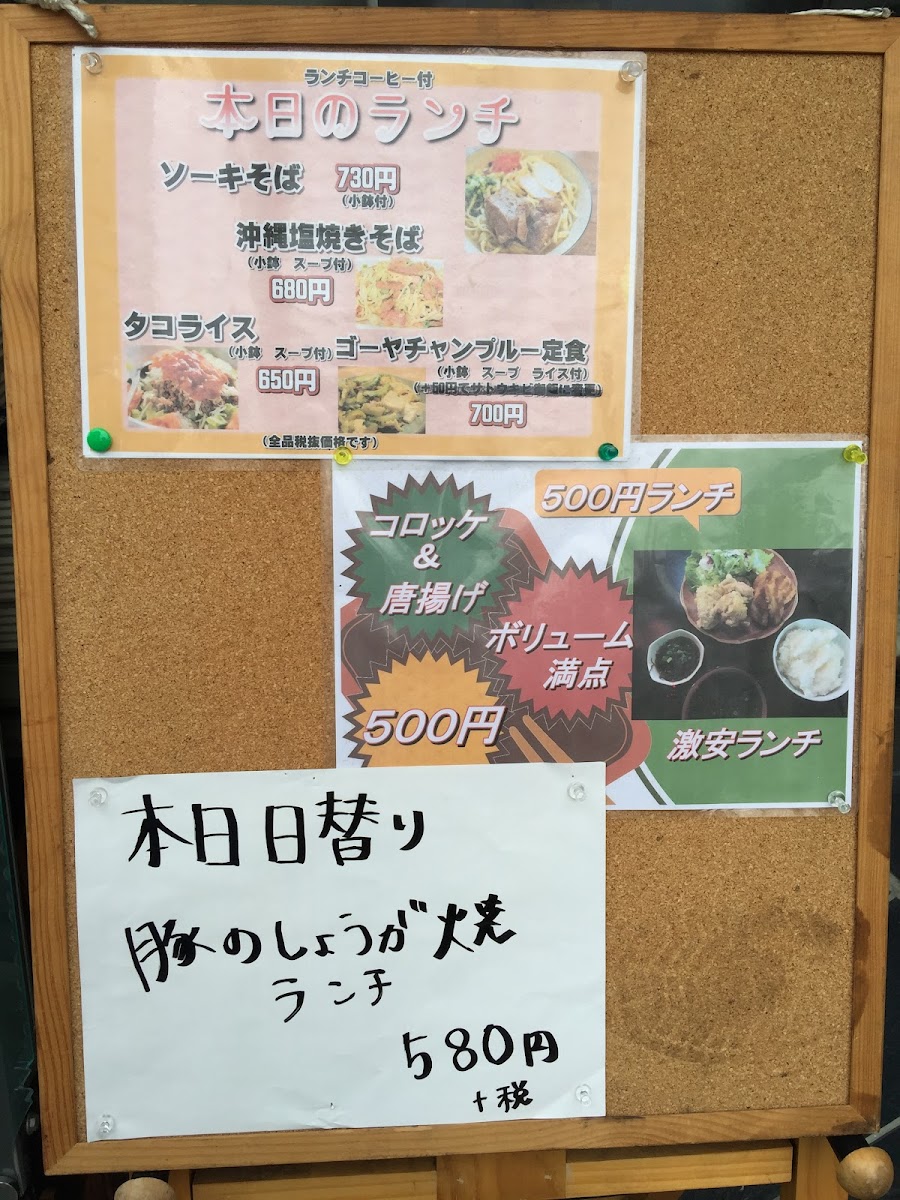 ランチコーヒー付
本日のランチ
ソーキそば 730円
(小鉢付)
沖縄塩焼きそば
(小鉢 スープ付)
680円
タコライス
(小鉢 スープ付)
650円
ゴーヤチャンプルー定食
(小鉢 スープ ライス付)
700円
(全品税抜価格です)
500円ランチ
コロッケ
&
唐揚げ
ボリューム
満点
500円
激安ランチ
本日日替り
豚のしょうが焼
ランチ
580円
+税